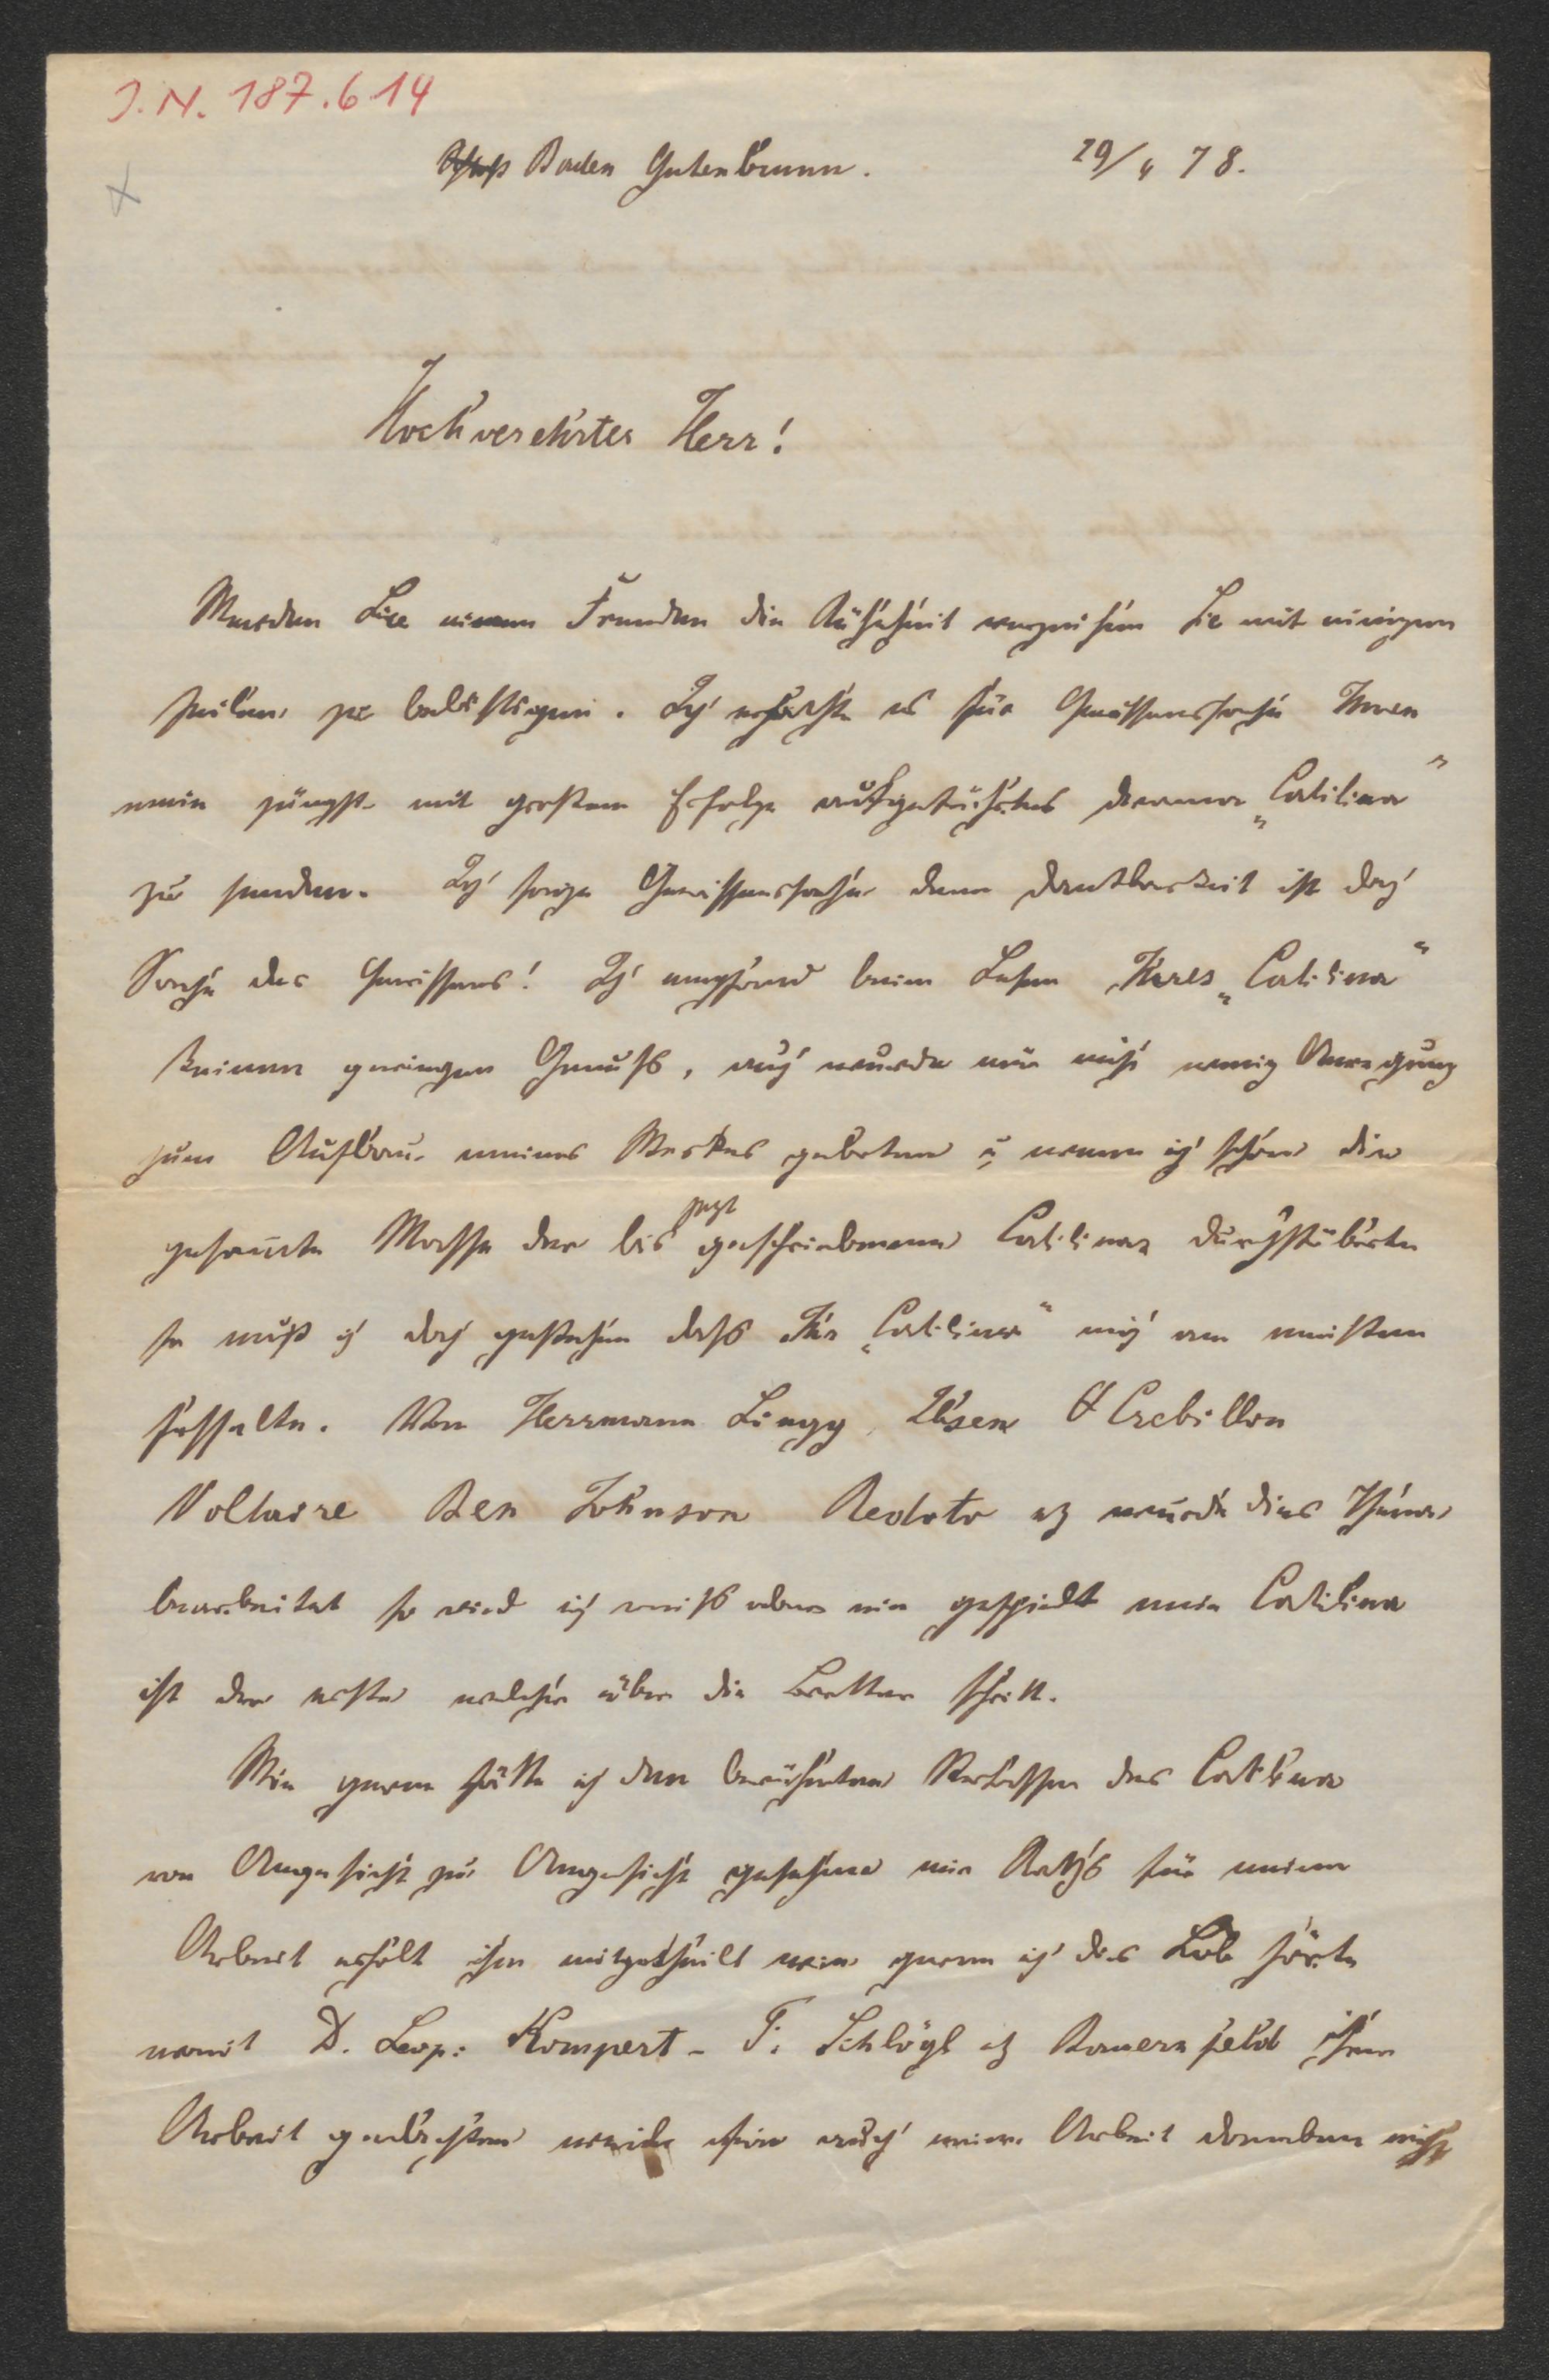 I. N. 187.614
Baden Gutenbrunn. 29/4 78.
Hochverehrter Herr!
Werden Sie einem Fremden die Kühnheit verzeihen Sie mit einigen
Zeilen zu belästigen. Ich erachte es für Gewissenssache Ihnen
mein jüngst mit großem Erfolge aufgeführtes Drama „Catilina“
zu senden. Ich sage Gewissenssache denn Dankbarkeit ist doch
Sache des Gewissens! Ich empfand beim Lesen Ihres „Catilina“
keinen geringen Genuß, auch wurde mir nicht wenig Anregung
zum Aufbau meines Werkes geboten u wenn ich schon die
gesamte Masse der bis jezt geschriebenen Catilinas durchstöberte
so muß ich doch gestehen daß Ihr „Catilina“ mich am meisten
fesselte. Von Herrmann Lingg, Ibsen Crebillon
Voltaire Ben Johnson Redoto etz wurde dies Thema
bearbeitet so viel ich weiß aber nie gespielt mein Catilina
ist der erste welcher über die Bretter schritt.
Wie gerne hätte ich den berühmten Verfasser des Catilina
von Angesicht zu Angesicht gesehen mir Raths für meine
Arbeit erholt ihm mitgetheilt wie gerne ich das Lob hörte
womit D. Leop: Kompert - F. Schlögl etz Bauernfeld Ihrer
Arbeit gedachten auch meine Arbeit daneben nicht